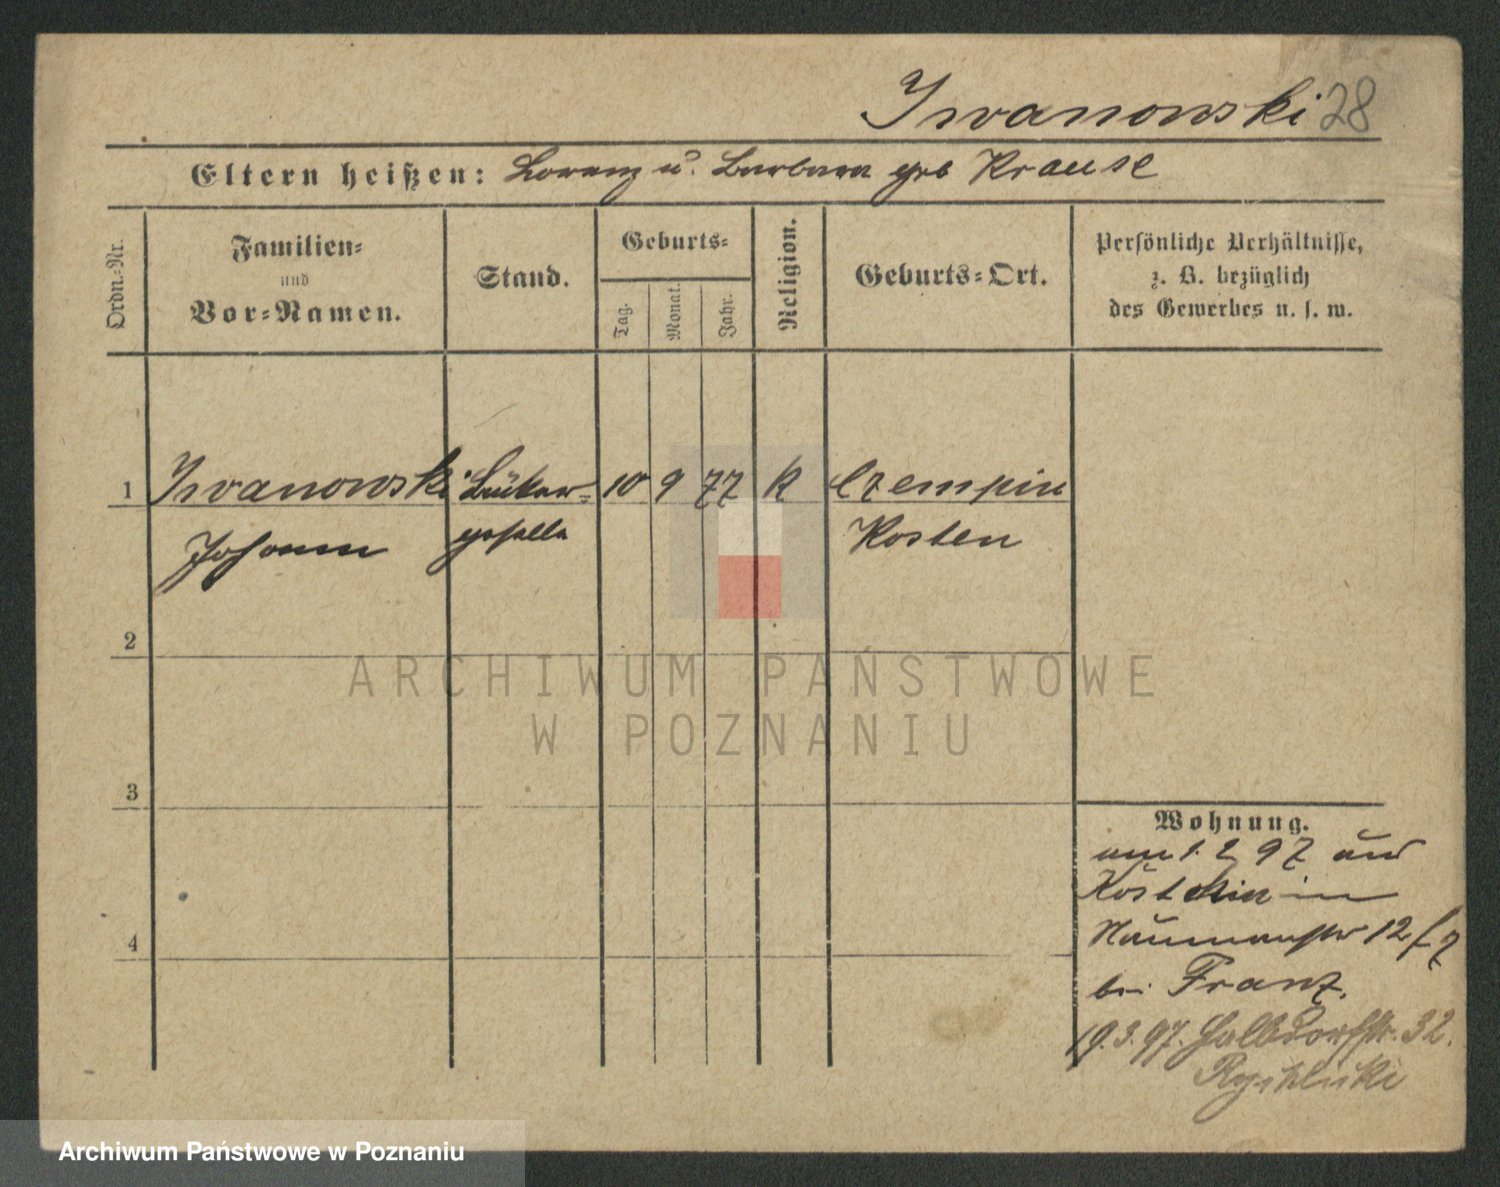 Iwanowski 28
Eltern heißen: Lorenz u. Barbara geb Krause
Ordn.=Nr.
Familien=
und
Vor=Namen.
Stand.
Geburts=
Tag.
Monat.
Jahr.
Religion.
Geburts=Ort.
Persönliche Verhältnisse,
z. B. bezüglich
des Gewerbes u. s. w.
1 Iwanowski Bäcker= 10 9 77 K Czempin
Johann geselle Kosten
2
3
4
Wohnung.
am 1. 2 97 aus
in
Naumannstr 12/
bei Franz.
19.3.97. Halbdorfstr. 32.
Rychlicki
ARCHIWUM PAŃSTWOWE
W POZNANIU
Archiwum Państwowe w Poznaniu